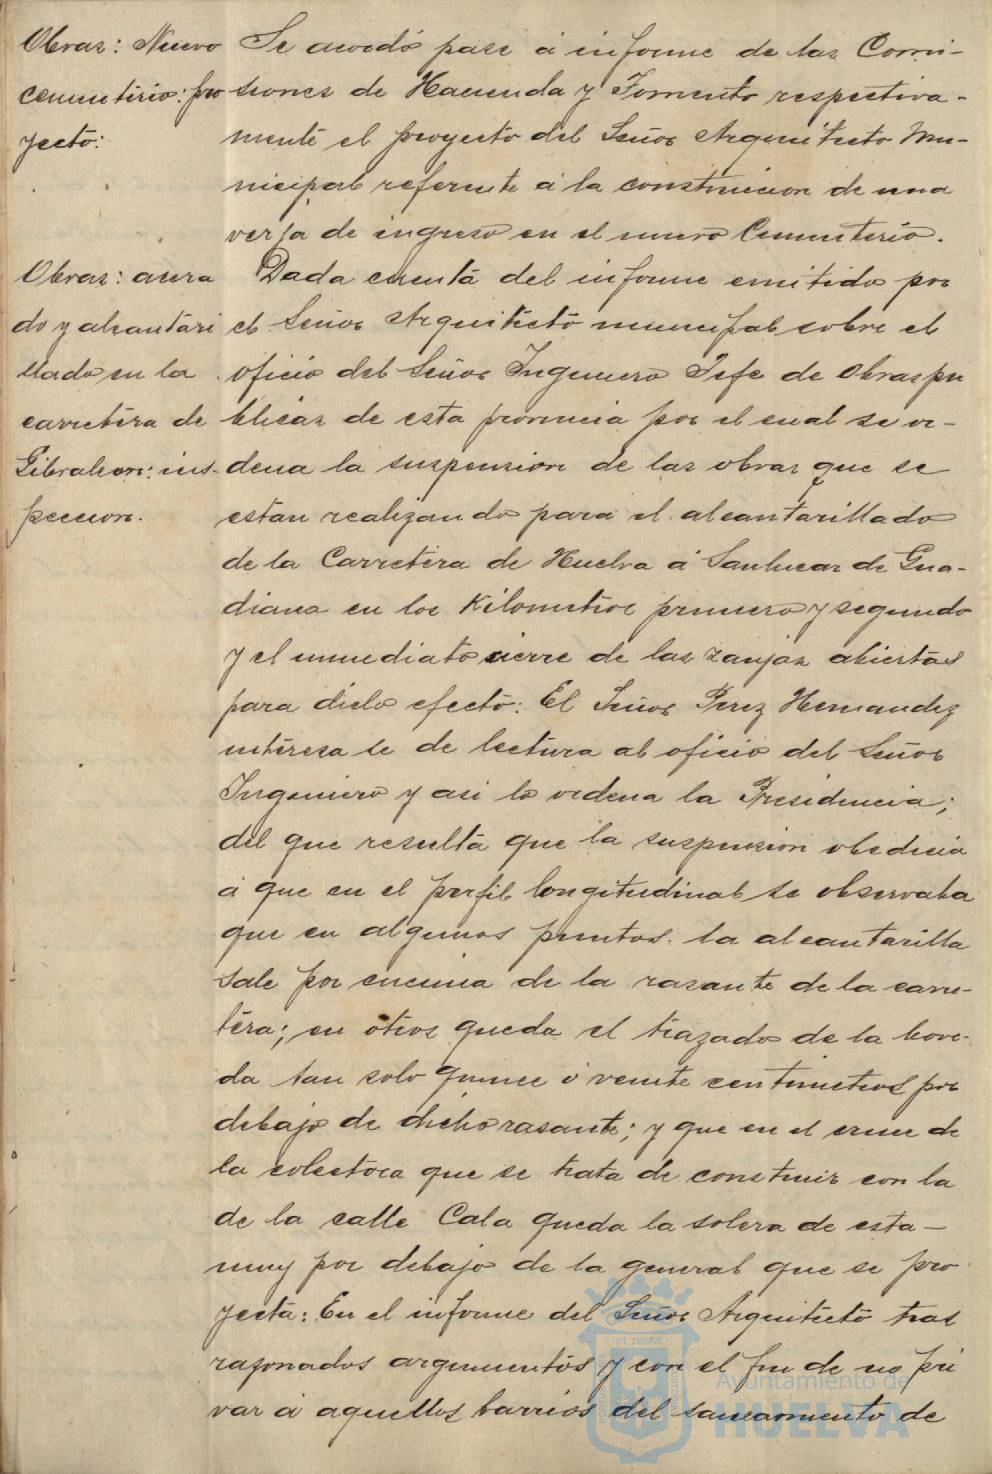 Obras: Nuevo
cementerio: pro
yecto:
Se acordó pase á informe de las Comi-
siones de Hacienda y Fomento respectiva-
mente el proyecto del Señor Arquitecto Mu-
nicipal referente á la construccion de una
verja de ingreso en el nuevo Cementerio.
Obras: acera
do y alcantari
llado en la
carretera de
Gibraleon: ins-
peccion.
Dada cuenta del informe emitido por
el Señor Arquitecto municipal sobre el
oficio del Señor Ingeniero Jefe de Obras pu
blicas de esta provincia por el cual se or-
dena la suspension de las obras que se
estan realizando para el alcantarillado
de la Carretera de Huelva á Sanlucar de Gua-
diana en los Kilometros primero y segundo
y el inmediato cierre de las zanjas abiertas
para dicho efecto: El Señor Perez Hernandez
interesa se de lectura al oficio del Señor
Ingeniero y asi lo ordena la Presidencia;
del que resulta que la suspension obedecia
á que en el perfil longitudinal se observaba
que en algunos puntos la alcantarilla
sale por encima de la rasante de la carre-
tera; en otros queda el trazado de la bove-
da tan solo quince ó veinte centimetros por
debajo de dicha rasante; y que en el cruce de
la colectora que se trata de construir con la
de la calle Cala queda la solera de esta-
muy por debajo de la general que se pro
yecta: En el informe del Señor Arquitecto tras
razonados argumentos y con el fin de no pri
var á aquellos barrios del saneamiento de
Ayuntamiento de
HUELVA